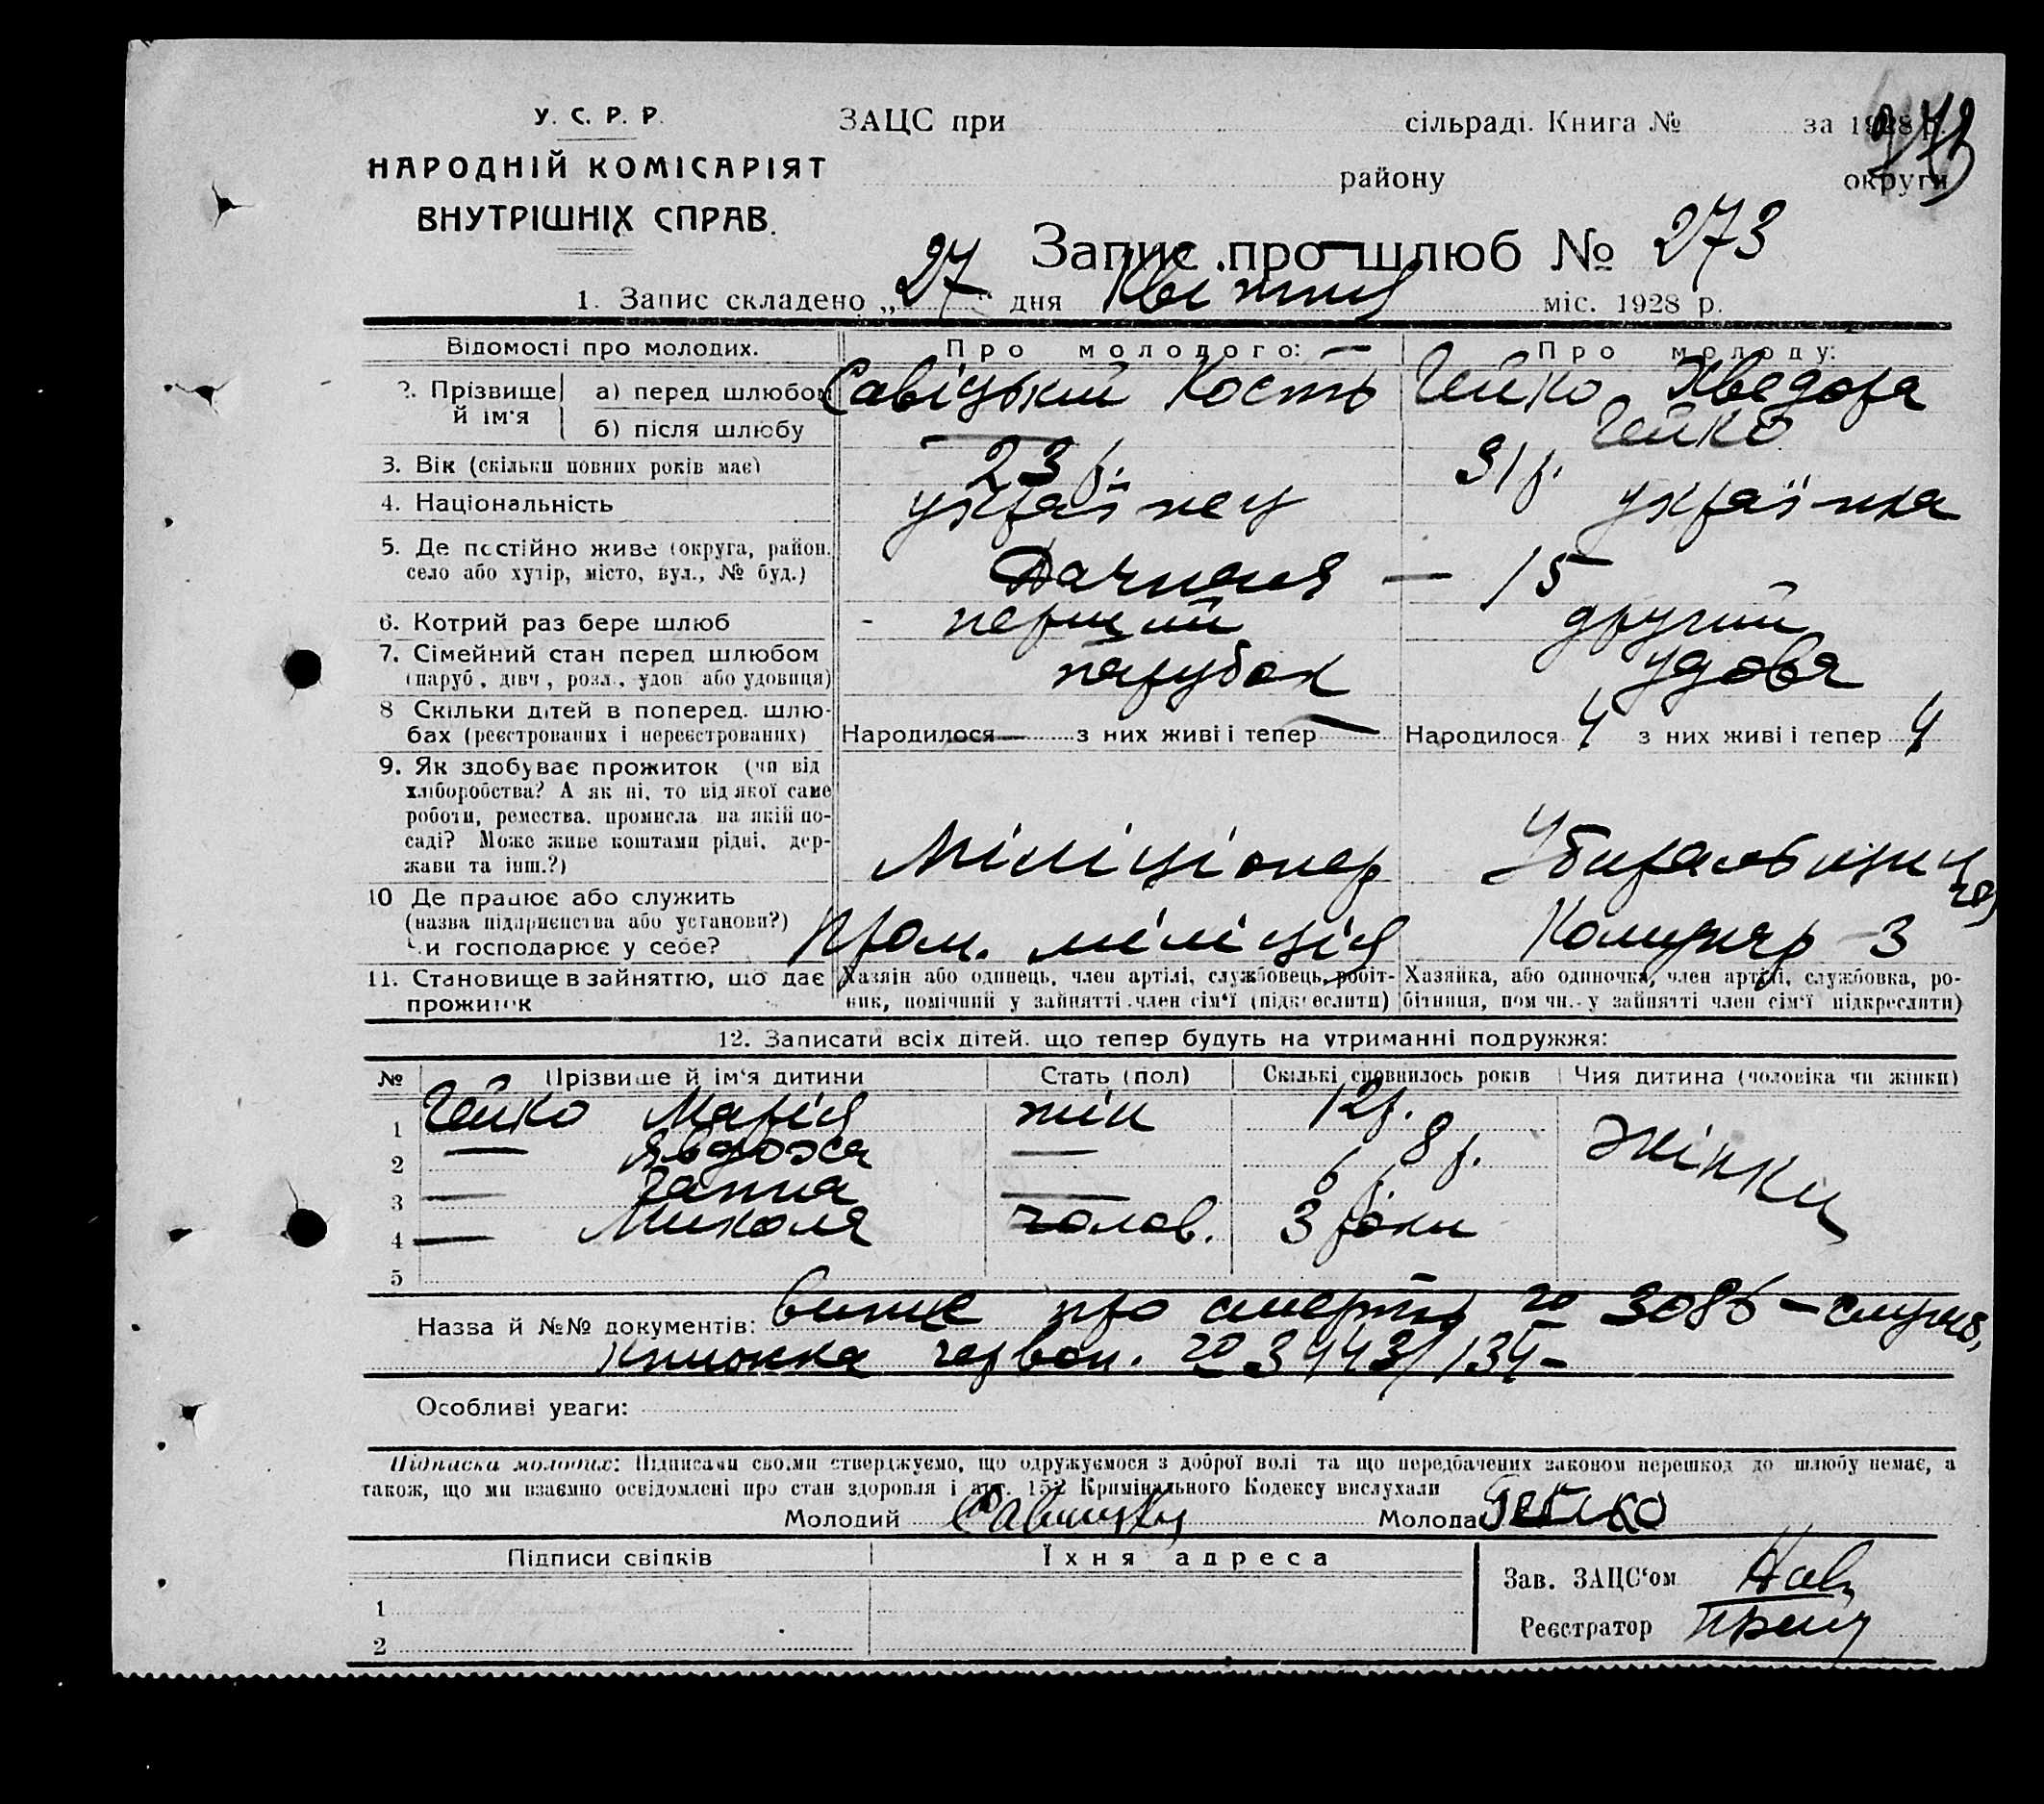 У. С. Р. Р.
НАРОДНІЙ КОМІСАРІЯТ
ВНУТРІШНІХ СПРАВ.
ЗАЦС при сільраді. Книга № за 1928 р.
району округи
273
Запис про шлюб № 273
1. Запис складено „27“ дня квітня міс. 1928 р.
Відомості про молодих. Про молодого: Про молоду:
2. Прізвище й ім'я а) перед шлюбом Савіцький Кость Гейко Хведора
б) після шлюбу — Гейко
3. Вік (скільки повних років має) 23 р. 31 р.
4. Національність українец українка
5. Де постійно живе (округа, район,
село або хутір, місто, вул., № буд.) — 15
6. Котрий раз бере шлюб - перший другий
7. Сімейний стан перед шлюбом
(паруб., дівч., розл., удов. або удовиця) парубок удова
8 Скільки дітей в поперед. шлю-
бах (реєстрованих і нереєстрованих) Народилося — з них живі і тепер — Народилося 4 з них живі і тепер 4
9. Як здобуває прожиток (чи від
хліборобства? А як ні, то від якої саме
роботи, ремества, промисла на якій по-
саді? Може живе коштами рідні, дер-
жави та інш.?) Міліціонер
10 Де працює або служить
(назва підприємства або установи?)
Чи господарює у себе? Пром. міліція Комунар 3
11. Становище в зайняттю, що дає
прожиток
Хазяїн або одинець, член артілі, службовець, робіт-
ник, помічний у зайнятті член сім'ї (підкреслити)
Хазяйка, або одиночка, член артілі, службовка, ро-
бітниця, помічн. у зайнятті член сім'ї підкреслити)
12. Записати всіх дітей, що тепер будуть на утриманні подружжя:
№ Прізвище й ім'я дитини Стать (пол) Скількі сповнилось років Чия дитина (чоловіка чи жінки)
1 Гейко Марія жін 12 р. Жінки
2 — Явдоха — 8 р.
3 — Ганна — 6 р.
4 — Микола чолов. 3 роки
5
Назва й №№ документів: випис про смерть № 3086 —
книжка червон. №
Особливі уваги:
Підписка молодих: Підписами своїми стверджуємо, що одружуємося з доброї волі та що передбачених законом перешкод до шлюбу немає, а
також, що ми взаємно освідомлені про стан здоровля і арт. 152 Кримінального Кодексу вислухали
Молодий Савицкий Молода Гейко
Підписи свідків Їхня адреса
Зав. ЗАЦС'ом
Реєстратор
1
2